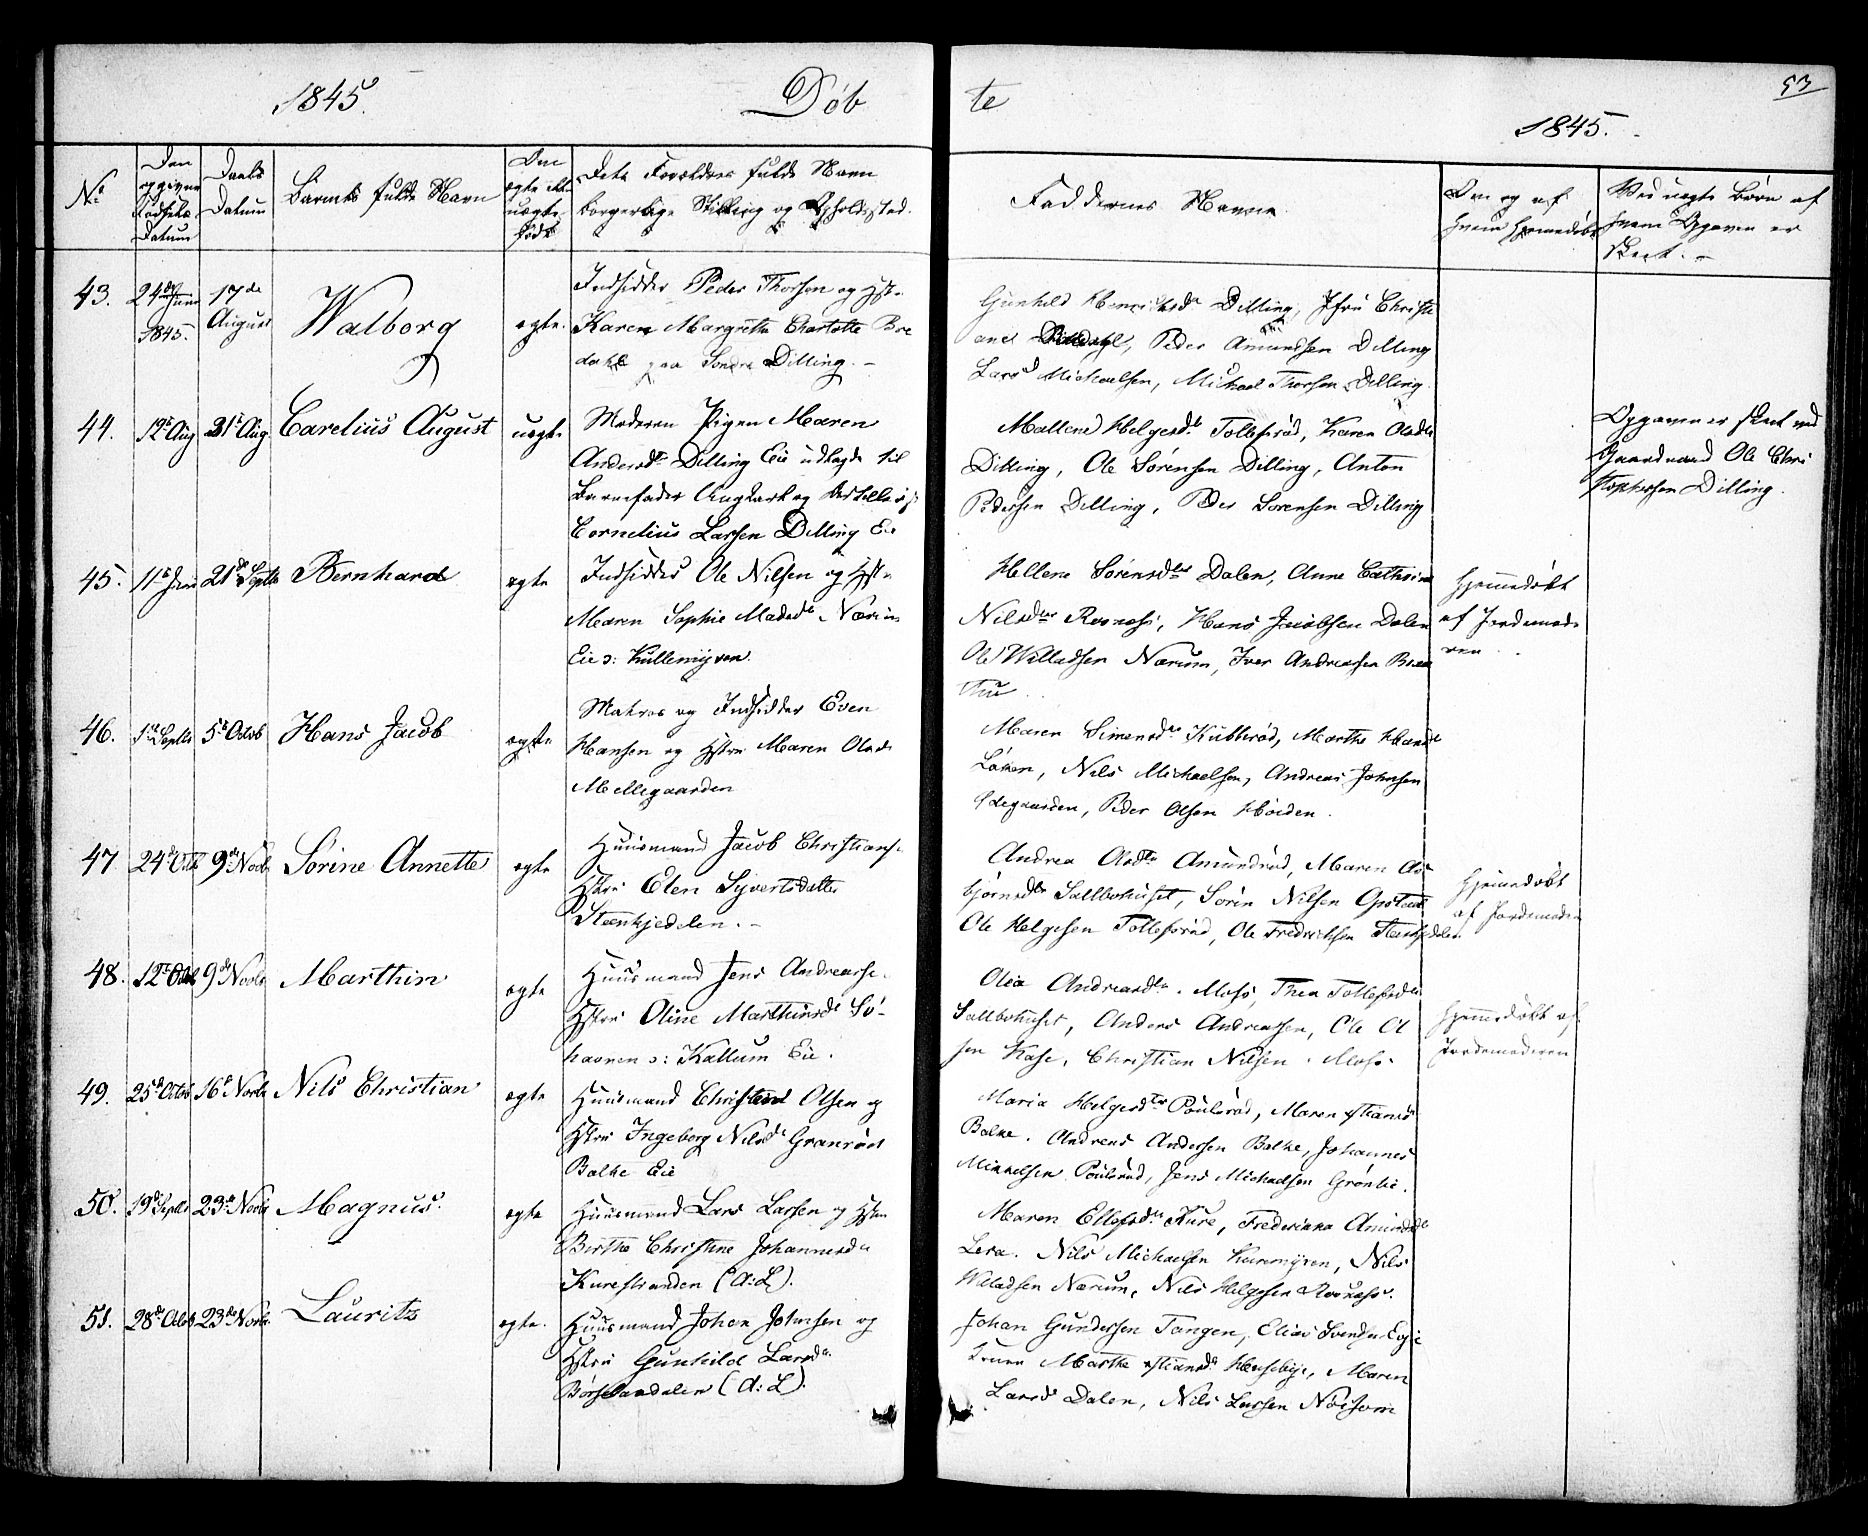 1845.
Døb
te
53
1845.
No
Den opgivne Fødsels Datum
Daabs Datum
Barnets fulde Navn
Om ægte eller uægte født
Dets Forældres fulde Navn
borgerlige Stilling og Opholdssted.
Faddernes Navne
Om og af hvem hjemmedøbt
Ved uægte Børn af hvem Opgaven er skeet.
43.
24de Juni 1845.
17de August
Walborg
ægte.
Indsidder Peder Thorsen og Hstr.
Karen Margrethe Charlotte Bre
dahl paa Søndre Dilling.
Gunhild Henriksd. Dilling, Jfru Christi
ane Bredahl, Peder Amundsen Dilling
Lars Michaelsen, Michael Thorsen Dilling.
44.
12te Aug
31te Aug
Carelius August
uægte
Moderen Pigen Maren
Andersdtr Dilling Eie udlagde til
Barnefader Ungkarl og
Cornelius Larsen Dilling Eie
Mallene Helgesdtr Tollefsrød, Karen Olsdtr
Dilling, Ole Sørensen Dilling, Anton
Pedersen Dilling, Peder Sørensen Dilling
Opgaven er skeet ved
Gaardmand Ole Chri
stophersen Dilling.
45.
11te Juni
21de Septb
Bernhard
ægte
Indsidder Ole Nilsen og Hstr
Maren Sophie Madsd. Nærum
Eie : Kullemyren.
Hellene Sørensdtr Dalen, Anne Cathrine
Nilsdtr Roenæss, Hans Jacobsen Dalen
Ole Willadsen Nærum, Iver Andreasen
Hjemmedøbt
af Jordemode
ren.
46.
1ste Septb
5te Octob
Hans Jacob
ægte
Matros og Indsidder Even
Hansen og Hstru Maren Olsd.
Mellegaarden
Maren Simensdtr Kubberød, Marthe Hansdtr
Løken, Nils Michaelsen, Andreas Johnsen
Ødegaarden, Peder Olsen Høiden.
47
24de Octb
9de Novb
Sørine Annette
ægte
Huusmand Jacob Christians.
Hstru Elen Syvertsdatter
Steenkjedelen.
Andrea Olsdtr Amundrød, Maren As
bjørnsdtr Saltbohuset, Sørin Nilsen
Ole Helgesen Tollefsrød, Ole Fredrichsen Steenkjedelen.
Hjemmedøbt
af Jordemode
48.
12te Octb
9de Novb
Marthin
ægte
Huusmand Jens Andreasse.
Hstru Oline Marthinsd. Sø-
havnen : Kallum Eie.
Olea Andreasdtr. Moss, Thea Tollefsdtr
Saltbohuset, Anders Andreassen, Ole Ol
sen Kase, Christian Nilsen. Moss.
Hjemmedøbt af
Jordemoderen
49.
25de Octob
16de Novb
Nils Christian
ægte
Huusmand Christian Olsen og
Hstru Ingeborg Nilsd. Granrød
Balke Eie
Maria Helgesdtr Poulsrød, Maren
Balke. Andreas Andersen Balke, Johannes
Mikkelsen Poulsrød, Jens Michaelsen Grønlie.
50.
19de Septb
23de Novb
Magnus.
ægte
Huusmand Lars Larsen og Hstru
Berthe Christine Johannesdtr
Kurestranden (A:L).
Maren Ellefsdtr Kure, Frederikka Amundsdtr
Lera. Nils Michaelsen Kurmyren, Nils
Willadsen Nærum, Nils Helgesen Roenæss.
51.
28de Octob
23de Novb.
Lauritz
ægte.
Huusmand Johan Johnsen og
Hstru Gunhilde Larsd.
Børselandalen (A:L).
Johan Gundersen Tangen, Elias Svendsen
Marthe Huseby, Maren
Larsd. Dalen, Nils Larsen Nøisom